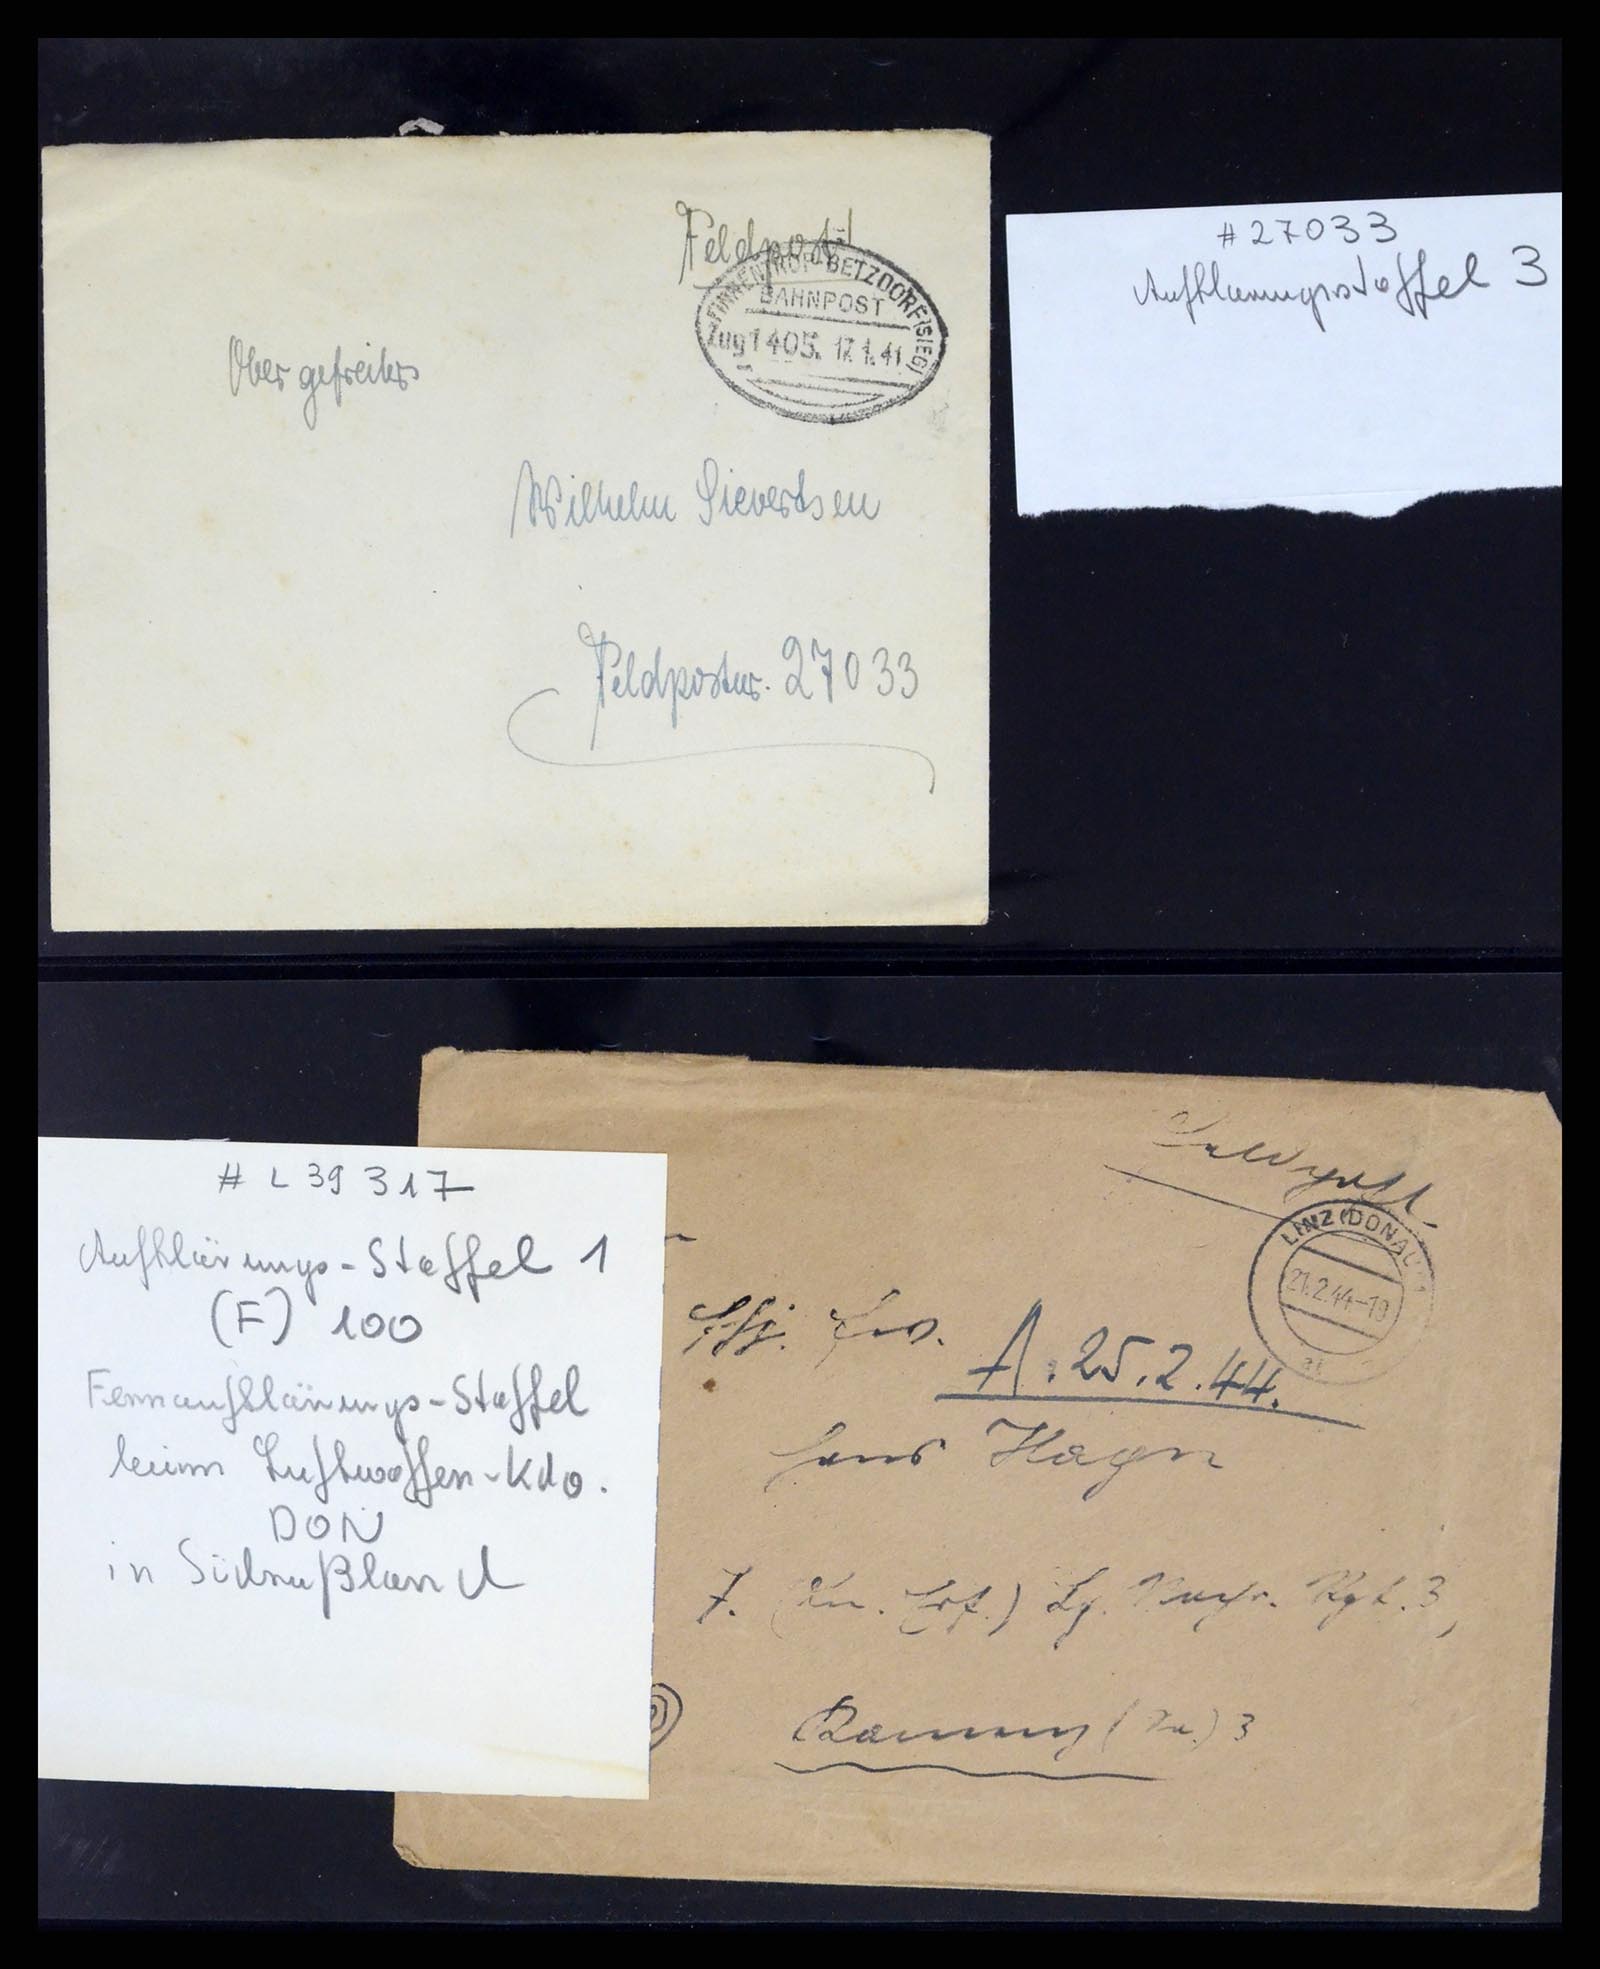 Feldpost!
FINNENTROP-BETZDORF(SIEG)
BAHNPOST
Zug 1405. 17.1.41
Obergefreiter
Wilhelm Sievertsen
Feldpostnr. 27033
#27033
Aufklärungsstaffel 3
# L 39317
Aufklärungs-Staffel 1
(F) 100
Fernaufklärungs-Staffel
beim Luftwaffen-Kdo.
DON
in Südrußland
Feldpost
LINZ (DONAU)
21.2.44-18
A. 25.2.44.
Hans Hagn
7. (Ln. ) Lg. Nachr. Rgt. 3,
3